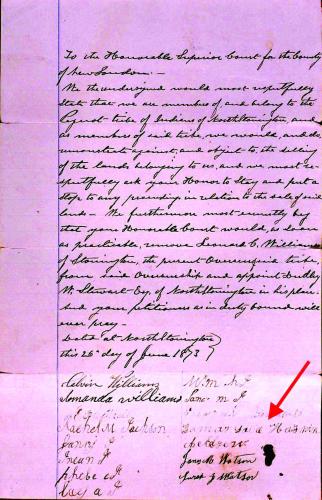 To the Honorable Superior Court for the County
of New London:—
We the undersigned would most respectfully
State that we are members of, and belong to the
Pequot tribe of Indians of North Stonington, and
as members of said tribe, we would, and do,
remonstrate against, and object to the selling
of the lands belonging to us, and we most re-
spectfully ask your Honor to Stay and put a
stop to any proceedings in relation to the sale of said
lands— We furthermore most earnestly beg
that your Honorable Court would, as soon
as practicable, remove Leonard C. Williams
of Stonington, the present Overseer of said tribe,
from said Overseership and appoint
W. Stewart Esq. of North Stonington in his place
And your petitioners as in duty bound will
ever pray—
Dated at North Stonington
this 26th day of June 1873
Calvin Williams
Amanda Williams
Rachel M Jackson
Fanny J
Phebe J
Lucy a J
Wm M J
James M Watson
Watson